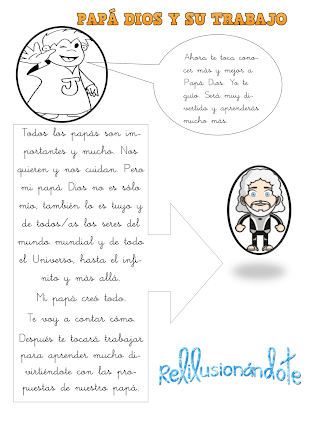 PAPÁ DIOS Y SU TRABAJO
Ahora te toca cono-
cer más y mejor a
Papá Dios. Yo te
guío. Será muy di-
vertido y aprenderás
mucho más.
J
Todos los papás son im-
portantes y mucho. Nos
quieren y nos cuidan. Pero
mi papá Dios no es sólo
mío, también lo es tuyo y
de todos/as los seres del
mundo mundial y de todo
el Universo, hasta el infi-
nito y más allá.
Mi papá creó todo.
Te voy a contar cómo.
Después te tocará trabajar
para aprender mucho di-
virtiéndote con las pro-
puestas de nuestro papá.
Relilusionándote